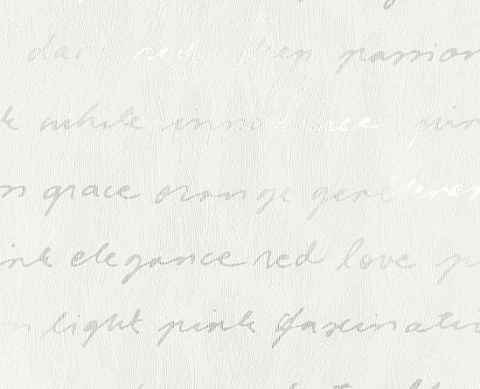 dark red deep passion
k white innocence pur
n grace orange gere
ink elegance red love p
n light pink fascinati